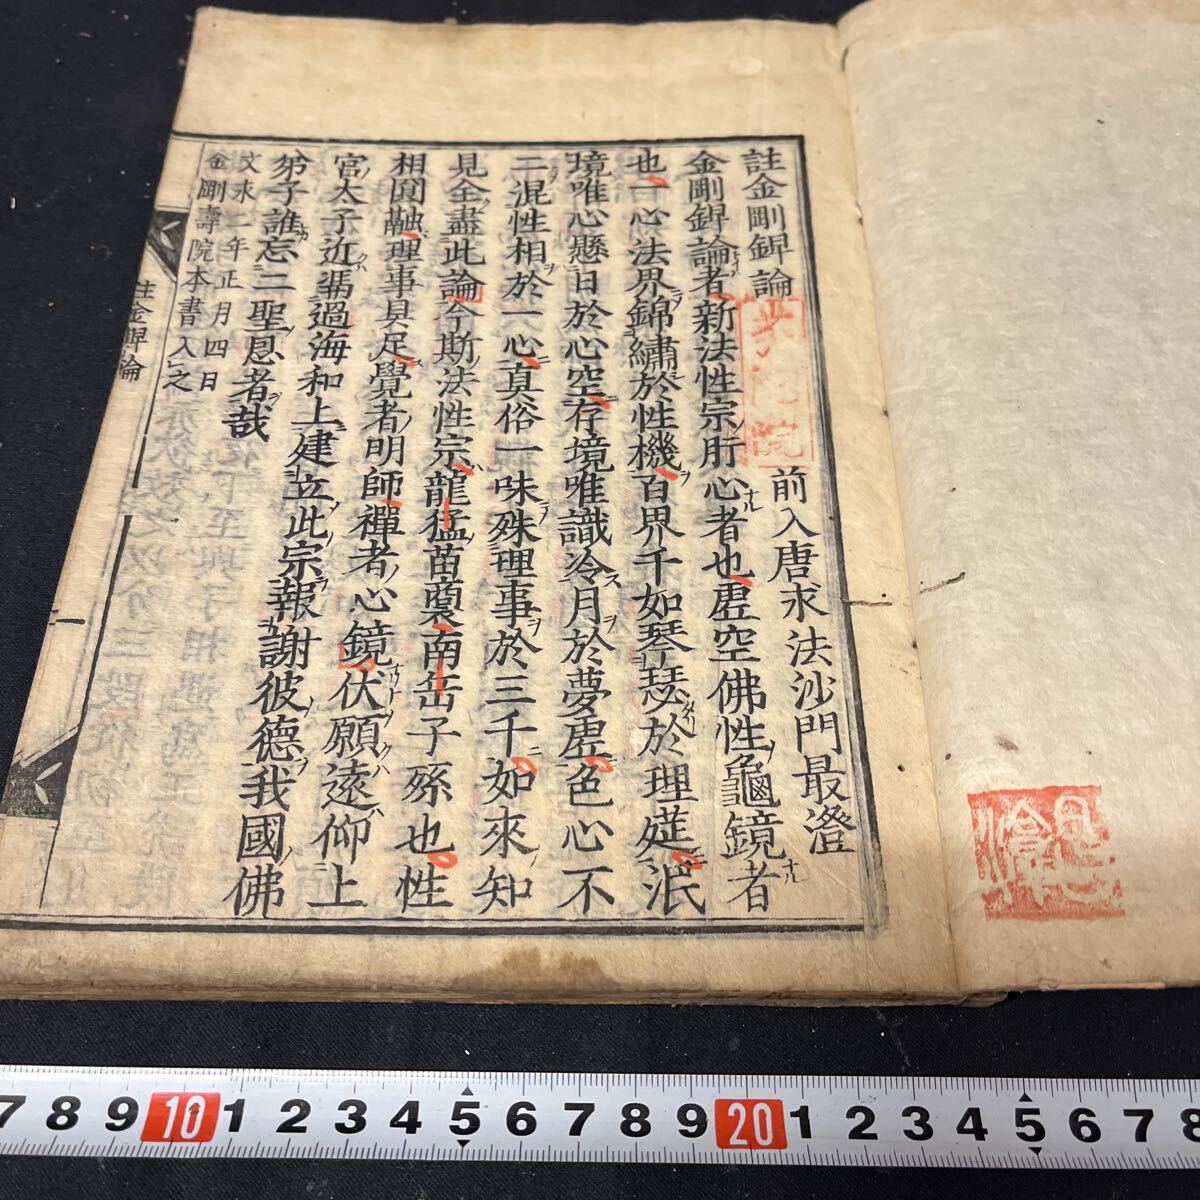 註金剛錍論
前入唐求法沙門最澄
金剛錍論者新法性宗肝心者也虚空佛性龜鏡者
也一心法界錦繡於性機百界千如琴瑟於理莚泯
境唯心懸日於心空存境唯識冷月於夢虚色心不
二混性相於一心真俗一味殊理事於三千如來知
見全盡此論今斯法性宗龍猛苗裔南岳子孫也性
相圓融理事具足覺者明師禪者心鏡伏願遠仰上
官太子近馮過海和上建立此宗報謝彼德我國佛
弟子誰忘二聖恩者哉
文永二年正月四日
金剛壽院本書入之
註金錍論
7 8 9 10 1 2 3 4 5 6 7 8 9 20 1 2 3 4 5 6 7 8